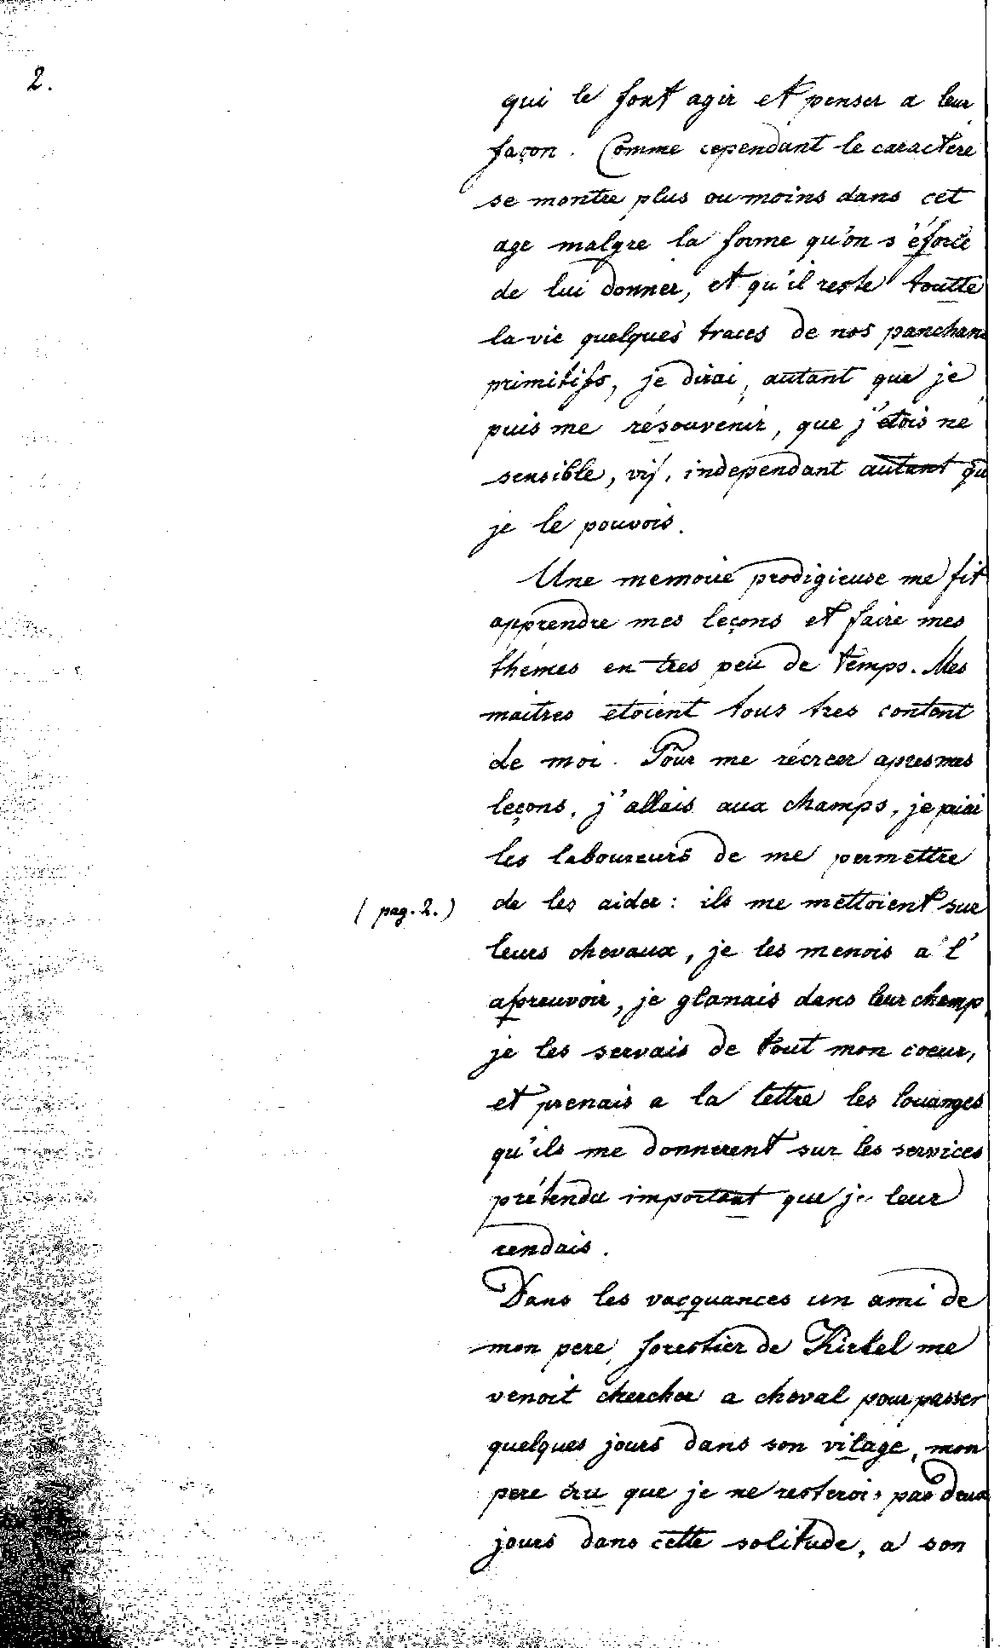 2.
qui le font agir et penser a leur
façon. Comme cependant le caractere
se montre plus ou moins dans cet
age malgre la forme qu'on s'éforce
de lui donner, et qu'il reste toutte
la vie quelques traces de nos panchans
primitifs, je dirai, autant que je
puis me résouvenir, que j'étois né
sensible, vif, independant autant qu
je le pouvois.
Une memoire prodigieuse me fit
apprendre mes leçons et faire mes
thémes en tres peu de temps. Mes
maitres etoient tous tres content
de moi. Pour me récréer apres mes
leçons, j'allais aux champs, je priai
les laboureurs de me permettre
( pag. 2. ) de les aider: ils me mettoient sur
leurs chevaux, je les menois a l'
apreuvoir, je glanais dans leur champ,
je les servais de tout mon coeur,
et prenais a la lettre les louanges
qu'ils me donnerent sur les services
prétendu important que je leur
rendais.
Dans les vacquances un ami de
mon pere, forestier de Kirkel me
venoit chercher a cheval pour passer
quelques jours dans son vilage, mon
pere cru que je ne resterois pas deux
jours dans cette solitude, a son